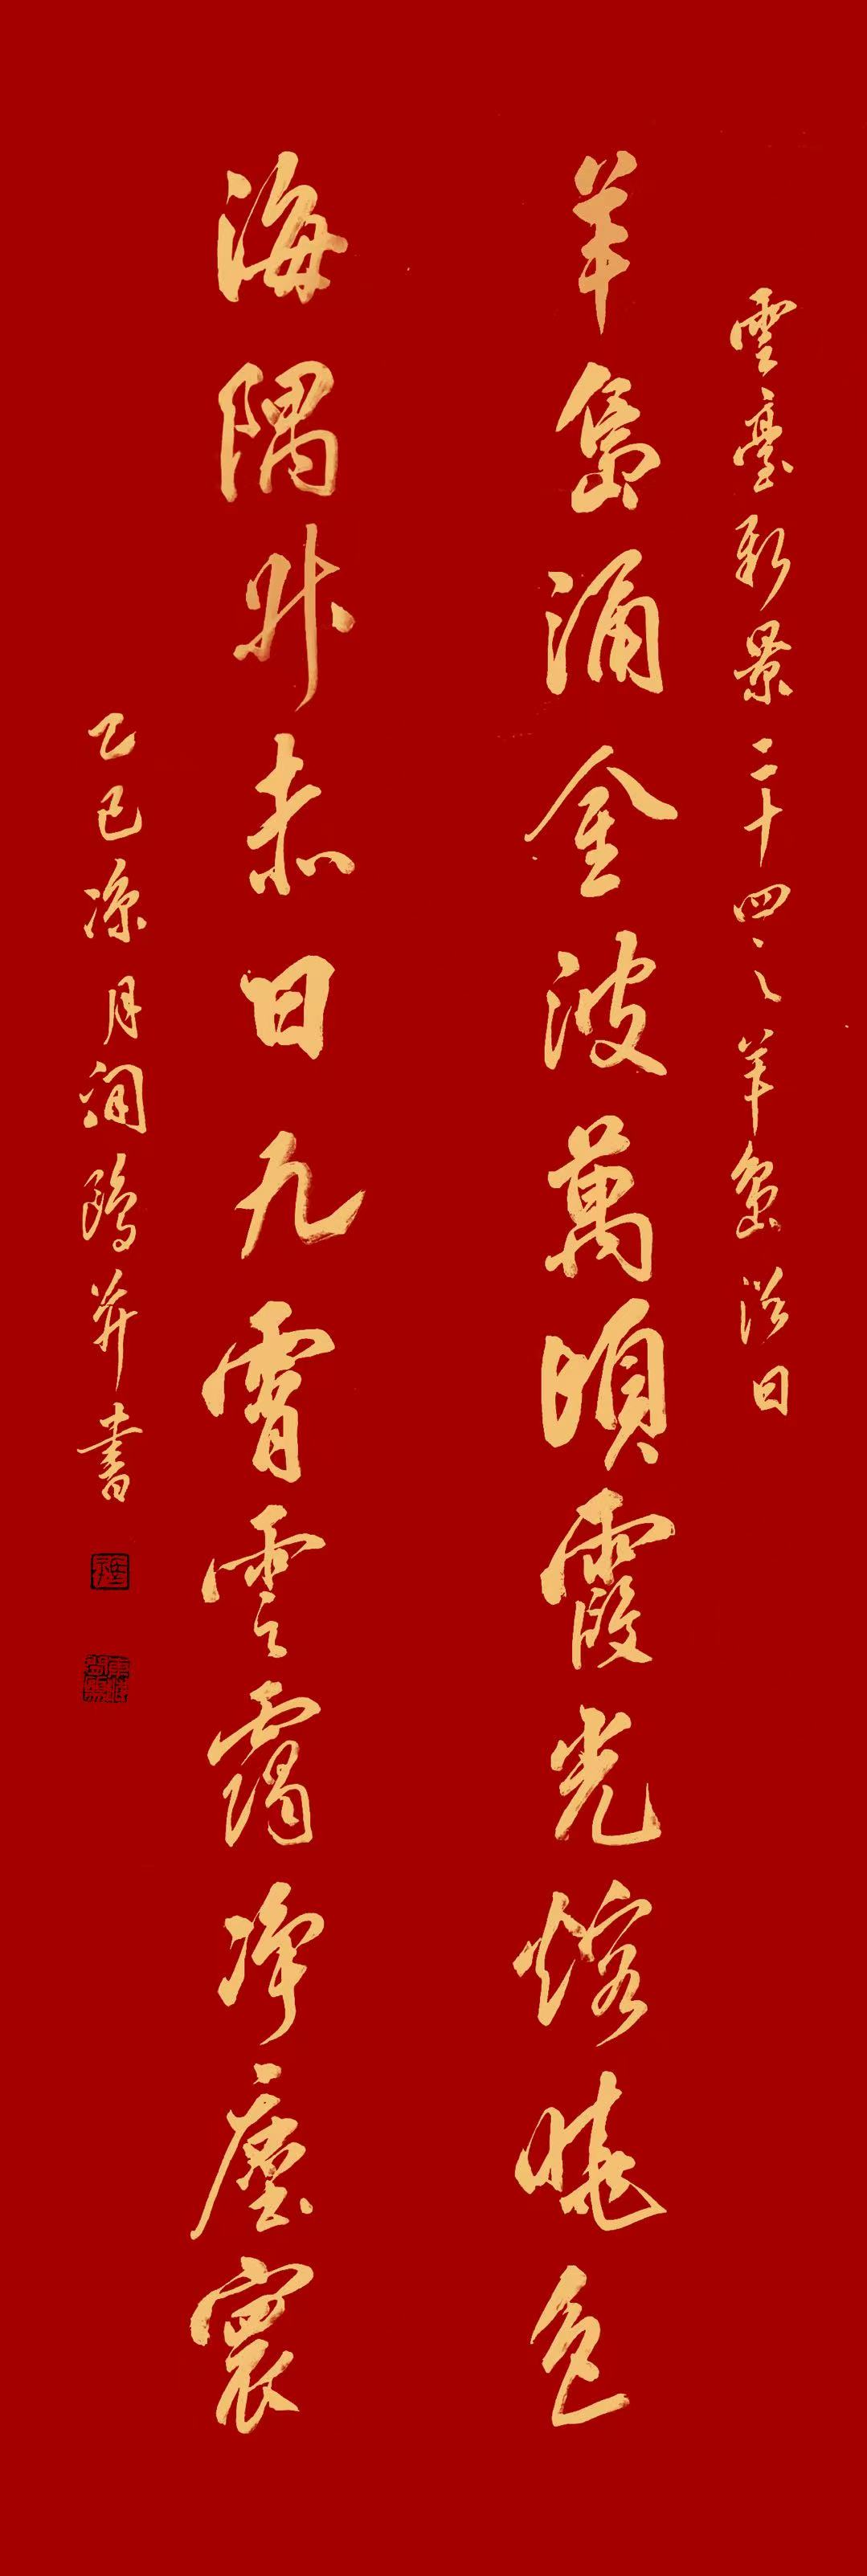 雲臺新景二十四之羊島浴日
羊島涌金波萬頃霞光熔曉色
海隅升赤日九霄雲靄淨塵寰
乙巳涼月鷗並書